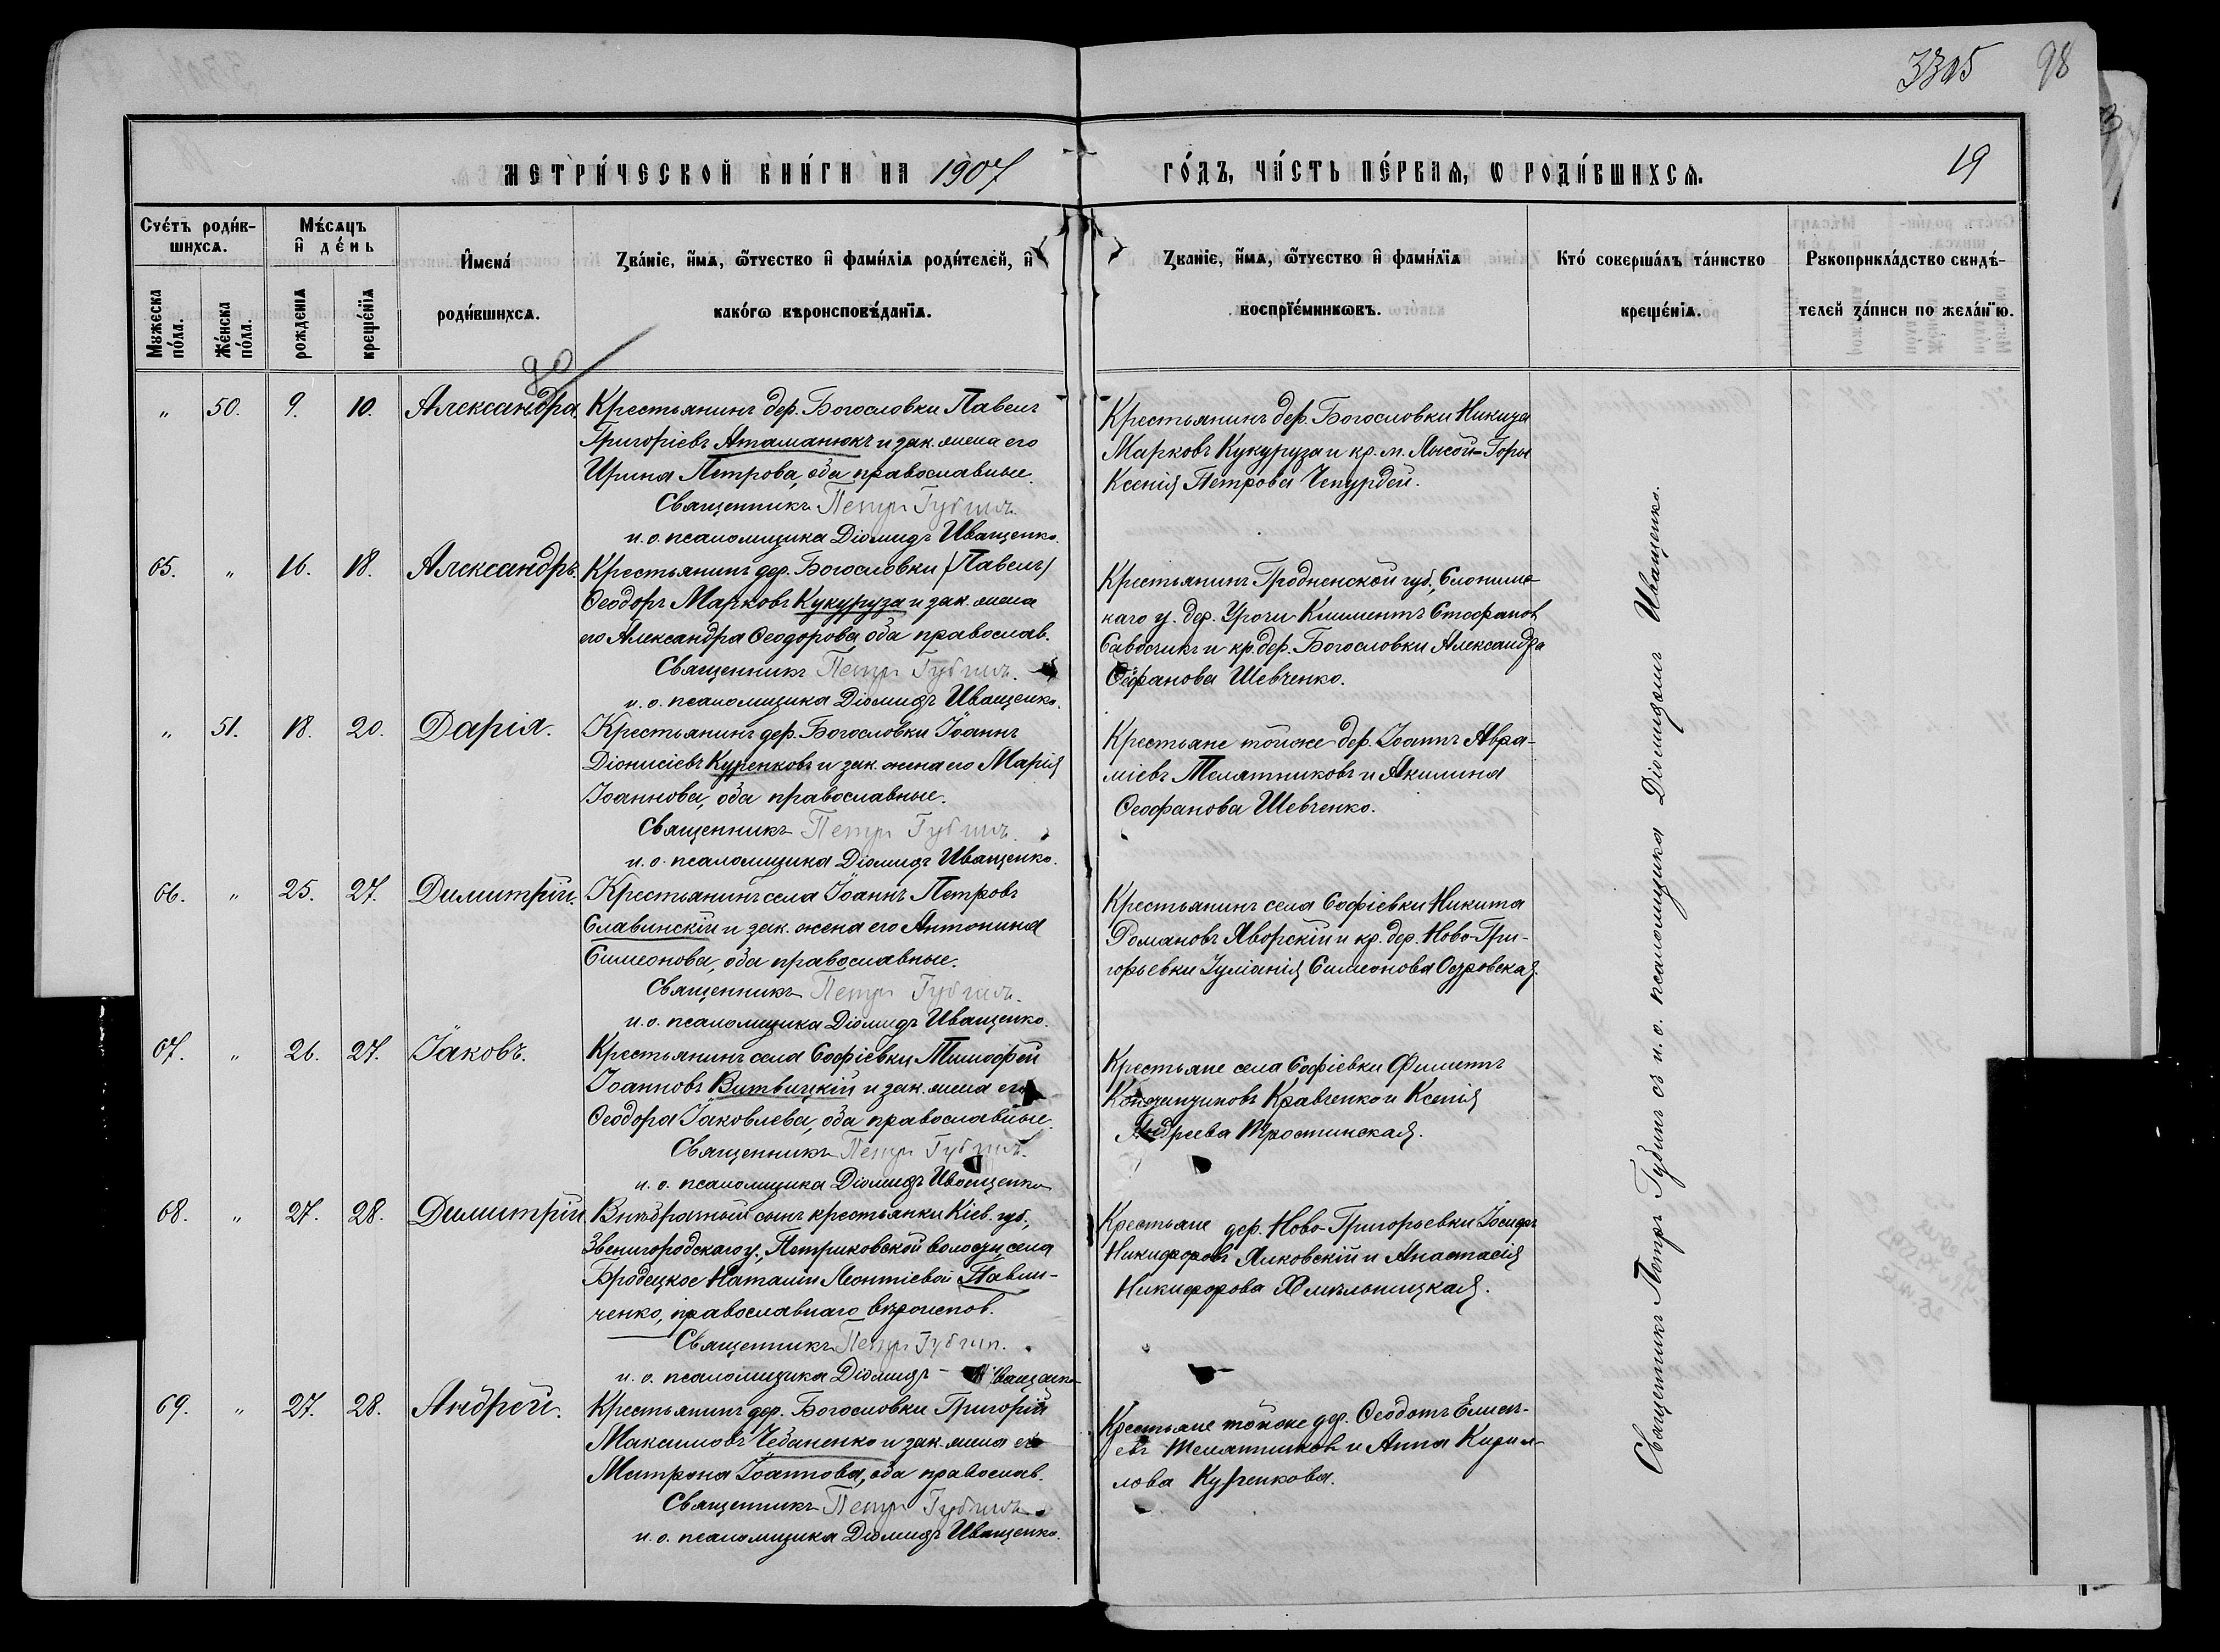 3305 98
19
МЕТРИ́ЧЕСКОЙ КНИ́ГИ НА 1907
ГО́ДЪ, ЧА́СТЬ ПЕ́РВАѦ, Ѡ РОДИ́ВШИХСѦ.
Сче́тъ роди́в-
шихсѧ.
Мꙋжеска по́ла.
Же́нска по́ла.
Мѣ́сѧцъ
и҆ де́нь
рожденїѧ
креще́нїѧ
И҆мена́
роди́вшихсѧ.
Зва́нїе, и҆́мѧ, ѻ҆́тчество и҆ фами́лїѧ роди́телей, и҆
како́гѡ вѣроисповѣ́данїѧ.
Зва́нїе, и҆́мѧ, ѻ҆́тчество и҆ фами́лїѧ
воспрїе́мникѡвъ.
Кто́ соверша́лъ та́инство
креще́нїѧ.
Рꙋкоприкла́дство свидѣ́-
телей за́писи по жела́нїю.
" 50. 9. 10. Александра
Крестьянинъ дер. Богословки Павелъ
Григоріевъ Атаманюкъ и зак. жена его
Ирина Петрова, оба православные.
Священникъ Петръ Губинъ.
и. о. псаломщика Діомидъ Иващенко.
Крестьянинъ дер. Богословки Никита
Марковъ Кукуруза и кр. м. Лысой-Горы
Ксенія Петрова Чепурдей.
65. " 16. 18. Александръ.
Крестьянинъ дер. Богословки (Павелъ)
Ѳеодоръ Марковъ Кукуруза и зак. жена
его Александра Ѳеодорова, оба православ.
Священникъ Петръ Губинъ.
и. о. псаломщика Діомидъ Иващенко.
Крестьянинъ Гродненской губ., Слонимс-
каго у. дер. Урочи Климентъ Стефановъ
и кр. дер. Богословки Александра
Шевченко.
" 51. 18. 20. Дарія.
Крестьянинъ дер. Богословки Іоаннъ
Діонисіевъ Куренковъ и зак. жена его Марія
Іоаннова, оба православные.
Священникъ Петръ Губинъ.
и. о. псаломщика Діомидъ Иващенко.
Крестьяне тойже дер. Іоаннъ Авра-
міевъ Телятниковъ и Акилина
Ѳеофанова Шевченко.
66. " 25. 27. Димитрій.
Крестьянинъ села Іоаннъ Петровъ
Славинскій и зак. жена его Антонина
Симеонова, оба православные.
Священникъ Петръ Губинъ.
и. о. псаломщика Діомидъ Иващенко.
Крестьянинъ села Софіевки Никита
Романовъ Яворскій и кр. дер. Ново-Гри-
горьевки Іуліанія Симеонова Островская.
67. " 26. 27. Іаковъ.
Крестьянинъ села Софіевки Тимофей
Іоанновъ Витвицкій и зак. жена его
Ѳеодора Іаковлева, оба православные.
Священникъ Петръ Губинъ.
и. о. псаломщика Діомидъ Иващенко
Крестьяне села Софіевки Филиппъ
Кравченко и Ксенія
Андреева Тростинская.
68. " 27. 28. Димитрій
Внѣбрачный сынъ крестьянки Кіев. губ.,
Звенигородскаго у., Петриковской волости, села
Бродецкое Наталіи Леонтіевой Павли-
ченко, православнаго вѣроиспов.
Священникъ Петръ Губинъ.
и. о. псаломщика Діомидъ - Иващенко
Крестьяне дер. Ново-Григорьевки Іосифъ
Никифоровъ Ялковскій и Анастасія
Никифорова Хмѣльницкая.
69. " 27. 28. Андрей.
Крестьянинъ дер. Богословки Григорій
Максимовъ Чебаненко и зак. жена его
Матрона Іоаннова, оба православ.
Священникъ Петръ Губинъ.
и. о. псаломщика Діомидъ Иващенко.
Крестьяне тойже дер. Ѳеодотъ Елисе-
евъ Телятниковъ и Анна Кирил-
лова Куренкова.
Священникъ Петръ Губинъ съ и. о. псаломщика Діомидомъ Иващенко.